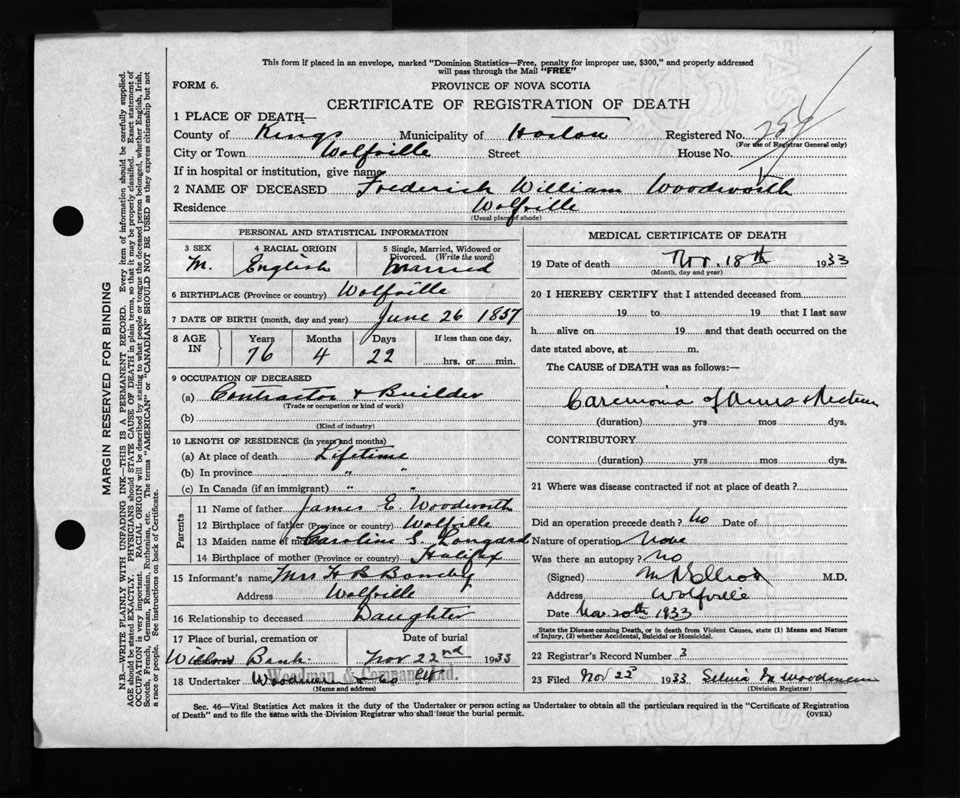 This form if placed in an envelope, marked "Dominion Statistics—Free, penalty for improper use, $300," and properly addressed
will pass through the Mail "FREE"
FORM 6.
PROVINCE OF NOVA SCOTIA
CERTIFICATE OF REGISTRATION OF DEATH
1 PLACE OF DEATH—
County of Kings Municipality of Horton Registered No.
(For use of Registrar General only)
City or Town Wolfville Street House No.
If in hospital or institution, give name
2 NAME OF DECEASED Frederick William Woodworth
Residence Wolfville
(Usual place of abode)
PERSONAL AND STATISTICAL INFORMATION
3 SEX 4 RACIAL ORIGIN 5 Single, Married, Widowed or Divorced. (Write the word)
M. English Married
6 BIRTHPLACE (Province or country) Wolfville
7 DATE OF BIRTH (month, day and year) June 26 1857
8 AGE IN Years Months Days If less than one day,
76 4 22 hrs. or min.
9 OCCUPATION OF DECEASED
(a) Contractor & Builder
(Trade or occupation or kind of work)
(b)
(Kind of industry)
10 LENGTH OF RESIDENCE (in years and months)
(a) At place of death Lifetime
(b) In province " "
(c) In Canada (if an immigrant) " "
Parents
11 Name of father James E. Woodworth
12 Birthplace of father (Province or country) Wolfville
13 Maiden name of mother Caroline E. Longard
14 Birthplace of mother (Province or country) Halifax
15 Informant's name Mrs H B
Address Wolfville
16 Relationship to deceased Daughter
17 Place of burial, cremation or Date of burial
Willow Bank Nov 22nd 1933
18 Undertaker Woodman & Co Ltd
Woodman & Company Ltd.
(Name and address)
MEDICAL CERTIFICATE OF DEATH
19 Date of death Nov. 18th 1933
(Month, day and year)
20 I HEREBY CERTIFY that I attended deceased from
19 to 19 that I last saw
h alive on 19 and that death occurred on
date stated above, at m.
The CAUSE of DEATH was as follows:—
Carcinoma of Anus & Rectum
(duration) yrs mos dys.
CONTRIBUTORY
(duration) yrs mos dys.
21 Where was disease contracted if not at place of death?
Did an operation precede death? No Date of
Nature of operation None
Was there an autopsy? No
(Signed) M.D.
Address Wolfville
Date Nov. 20th 1933
State the Disease causing Death, or in death from Violent Causes, state (1) Means and Nature
of Injury, (2) whether Accidental, Suicidal or Homicidal.
22 Registrar's Record Number 3
23 Filed Nov 22d 1933 M Woodman
(Division Registrar)
Sec. 46—Vital Statistics Act makes it the duty of the Undertaker or person acting as Undertaker to obtain all the particulars required in the "Certificate of Registration
of Death" and to file the same with the Division Registrar who shall issue the burial permit. (OVER)
MARGIN RESERVED FOR BINDING
N.B.—WRITE PLAINLY WITH UNFADING INK—THIS IS A PERMANENT RECORD. Every item of information should be carefully supplied.
AGE should be stated EXACTLY. PHYSICIANS should STATE CAUSE OF DEATH in plain terms, so that it may be properly classified. Exact statement of
OCCUPATION is very important. RACIAL ORIGIN will be described by stating to what people or tongue the deceased person belonged, whether English, Irish,
Scotch, French, German, Russian, Ruthenian, etc. The terms "AMERICAN" or "CANADIAN" SHOULD NOT BE USED as they express citizenship but not
a race or people. See instructions on back of Certificate.